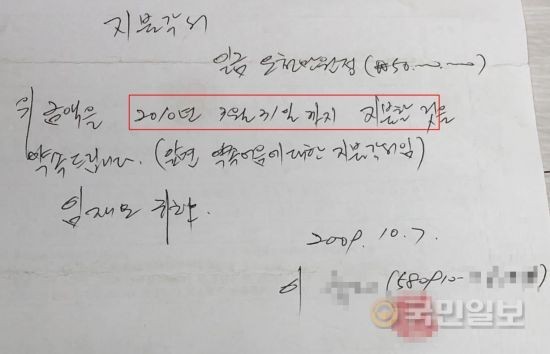 지불각서
일금 오천만원정 (₩50,000,000)
위 금액을 2010년 3월 31일 까지 지불할 것을
약속드립니다. (앞면 약속어음에 대한 지불각서임)
임재모 귀하.
2009. 10. 7.
이 (580910-
국민일보